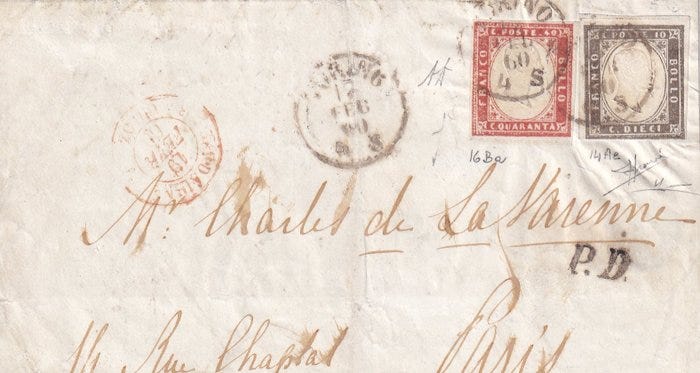 TORINO
17
FEB
60
4 S
TORINO
FEB
60
4 S
C. POSTE 40
FRANCO
BOLLO
C. QUARANTA
C. POSTE 10
FRANCO
BOLLO
C. DIECI
16Ba
14Ae
Mr. Charles de La Varenne
P.D.
14 Rue Chaptal
Paris